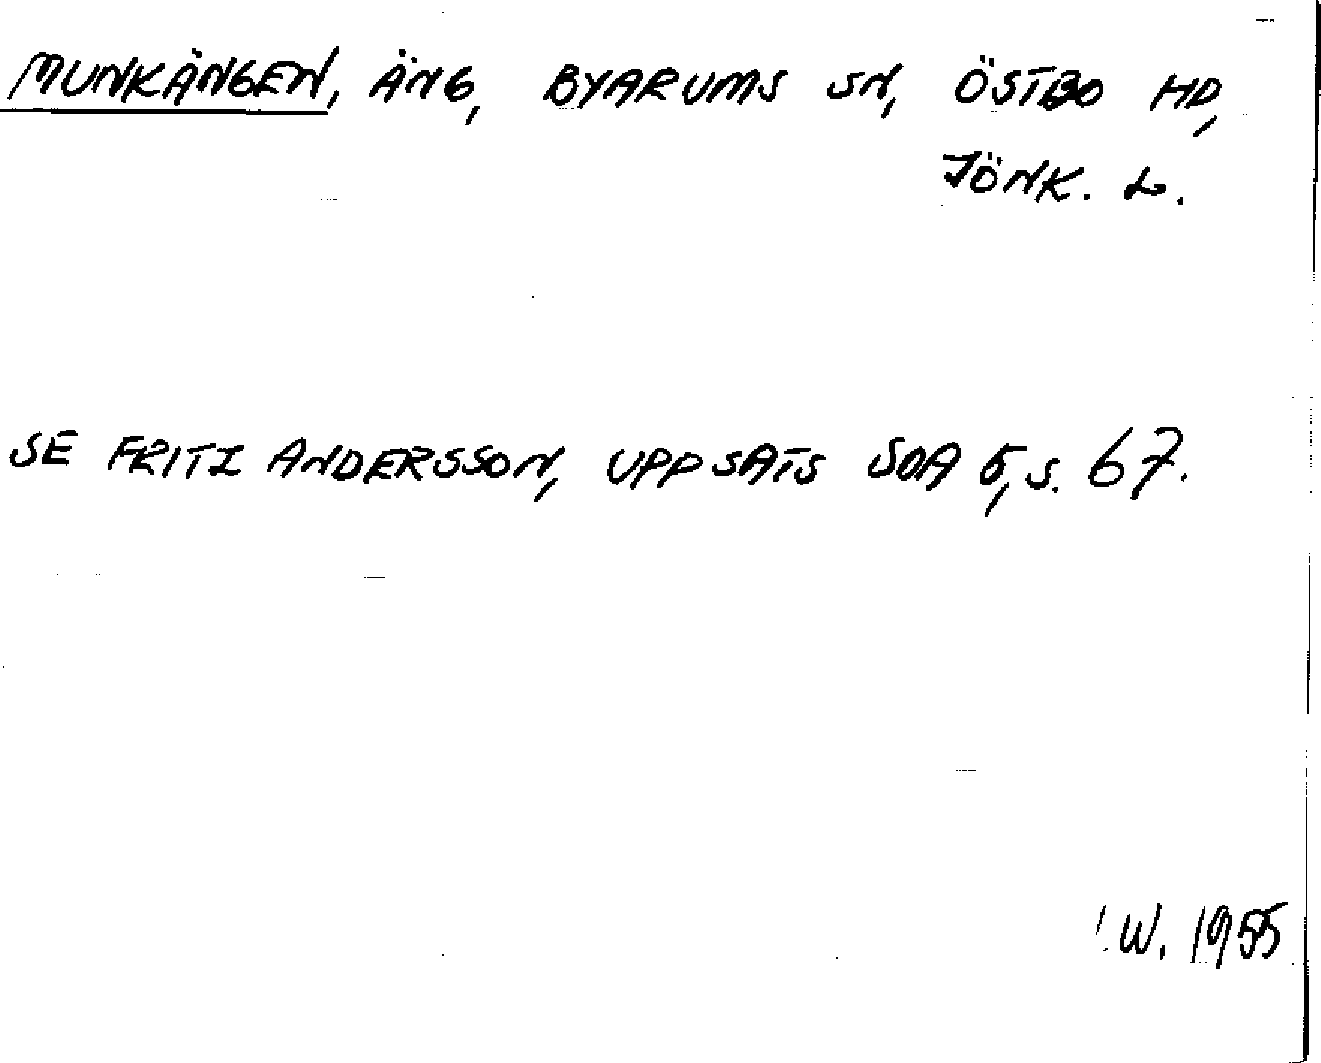 MUNKÄNGEN, ÄNG, BYARUMS SN, ÖSTBO HD,
JÖNK. L.
SE FRITZ ANDERSSON, UPPSATS SOA 5, S. 67.
I.W. 1955